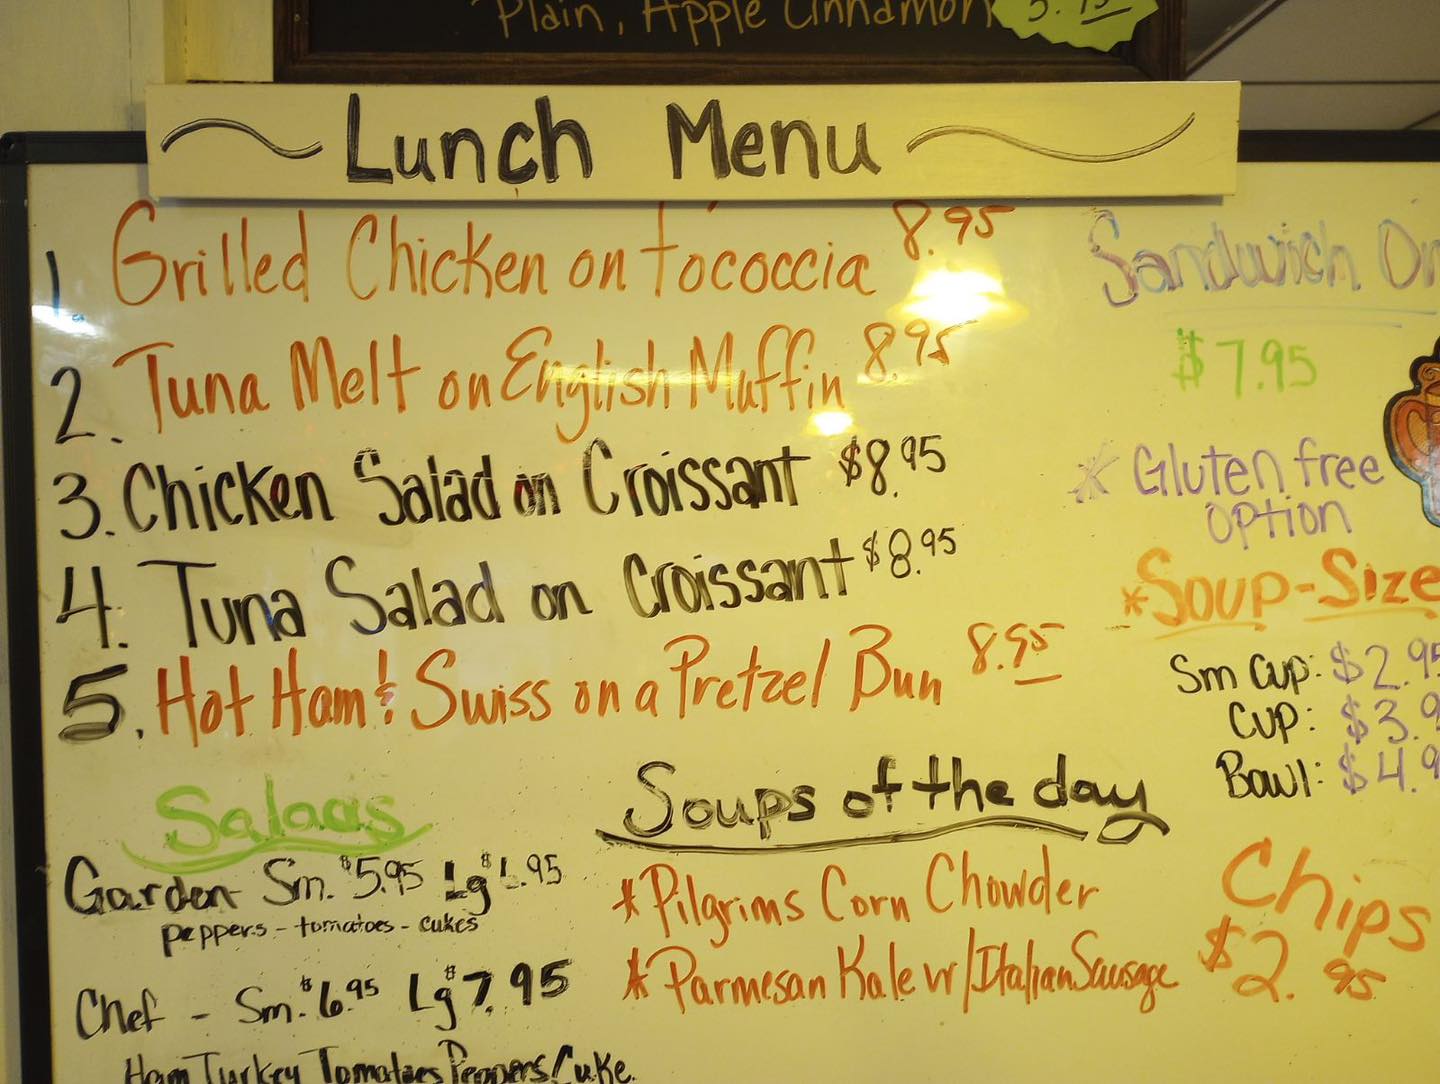 Plain, Apple Cinnamon
Lunch Menu
1. Grilled Chicken on Fococcia 8.95
2. Tuna Melt on English Muffin 8.95
3. Chicken Salad on Croissant $8.95
4. Tuna Salad on Croissant $8.95
5. Hot Ham & Swiss on a Pretzel Bun 8.95
Sandwich
$7.95
* Gluten free
option
*Soup-Size
Sm Cup: $2.95
Cup: $3.9
Bowl: $4.9
Salads
Garden- Sm. $5.95 Lg $6.95
peppers - tomatoes - cukes
Chef - Sm. $6.95 Lg $7.95
Ham Turkey Tomatoes Peppers Cuke.
Soups of the day
*Pilgrims Corn Chowder
*Parmesan Kale w/Italian Sausage
Chips
$2.95